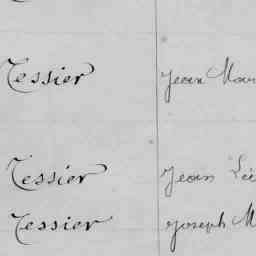 Tessier Jean Mar
Tessier Jean Lé
Tessier Joseph M